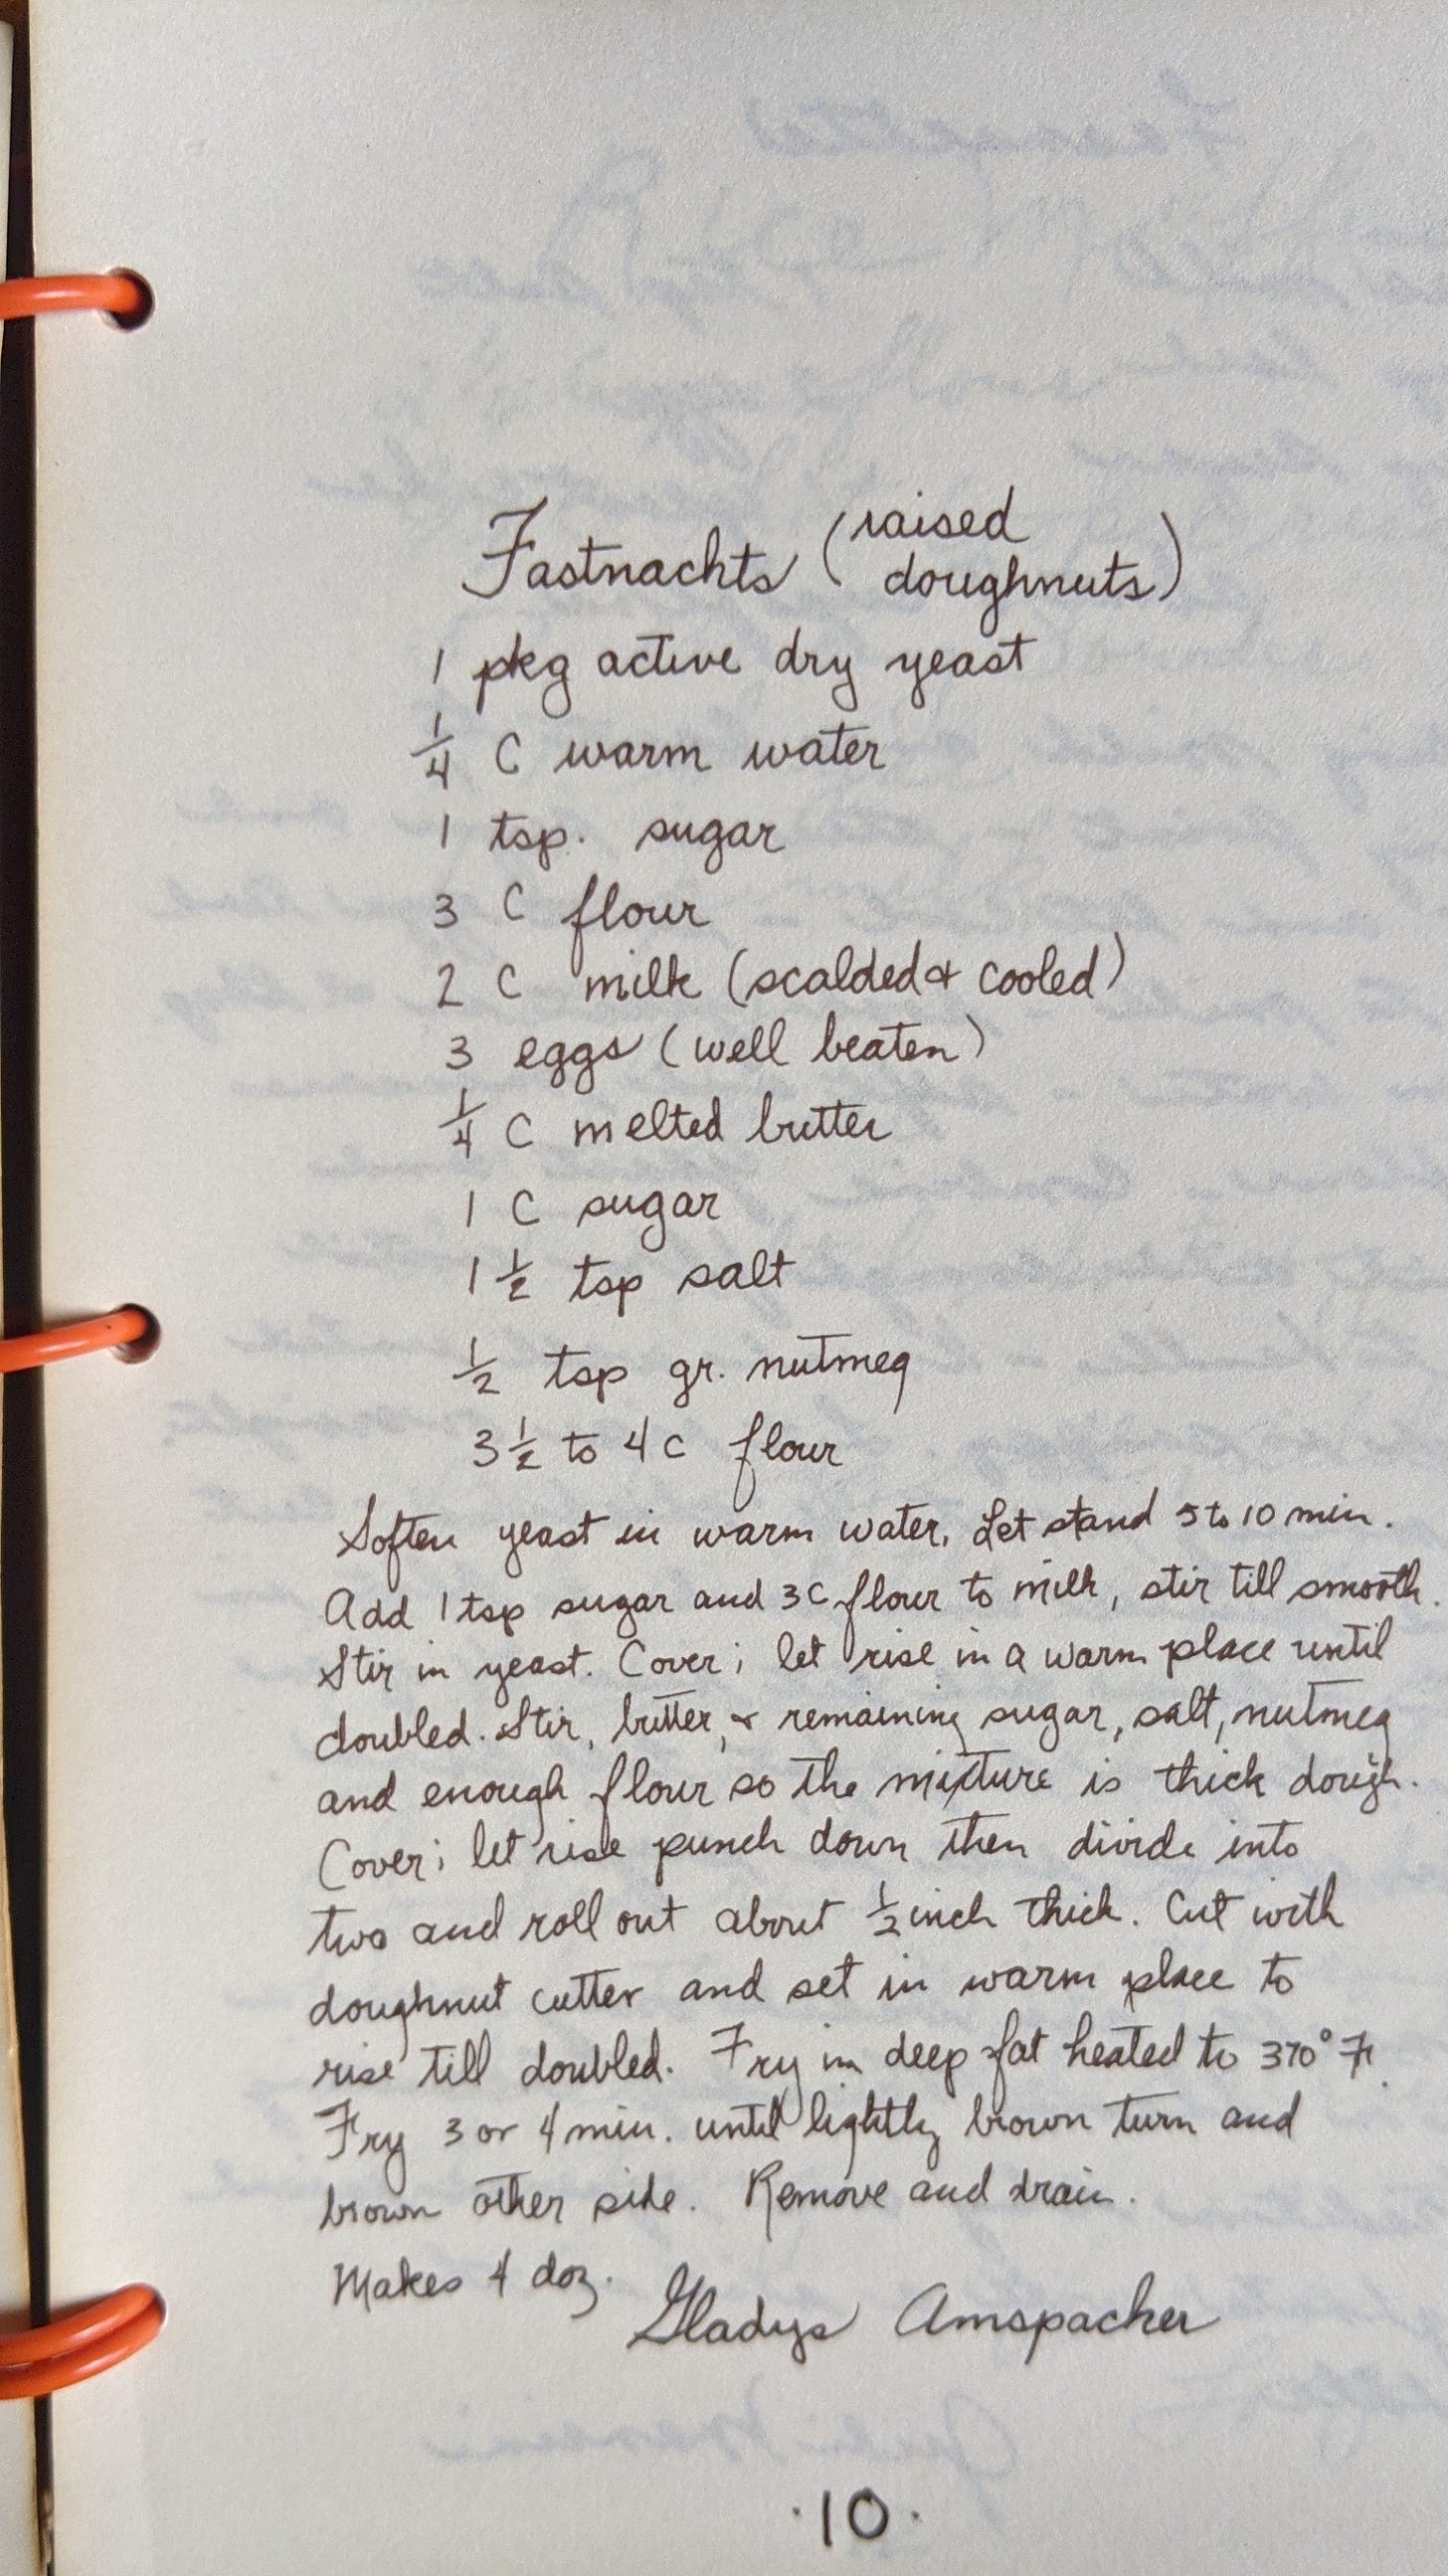 Fastnachts (raised
doughnuts)
1 pkg active dry yeast
1/4 C warm water
1 tsp. sugar
3 C flour
2 C milk (scalded & cooled)
3 eggs (well beaten)
1/4 C melted butter
1 C sugar
1 1/2 tsp salt
1/2 tsp gr. nutmeg
3 1/2 to 4 C flour
Soften yeast in warm water. Let stand 5 to 10 min.
Add 1 tsp sugar and 3 C flour to milk, stir till smooth.
Stir in yeast. Cover; let rise in a warm place until
doubled. Stir, butter, & remaining sugar, salt, nutmeg
and enough flour so the mixture is thick dough.
Cover; let rise punch down then divide into
two and roll out about 1/2 inch thick. Cut with
doughnut cutter and set in warm place to
rise till doubled. Fry in deep fat heated to 370° F.
Fry 3 or 4 min. until lightly brown turn and
brown other side. Remove and drain.
Makes 4 doz.
Gladys Amspacher
·10·